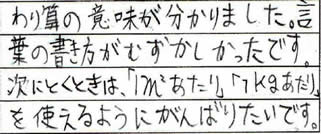 わり算の意味が分かりました。言
葉の書き方がむずかしかったです。
次にとくときは、「1m²あたり」「1kgあたり」
を使えるようにがんばりたいです。